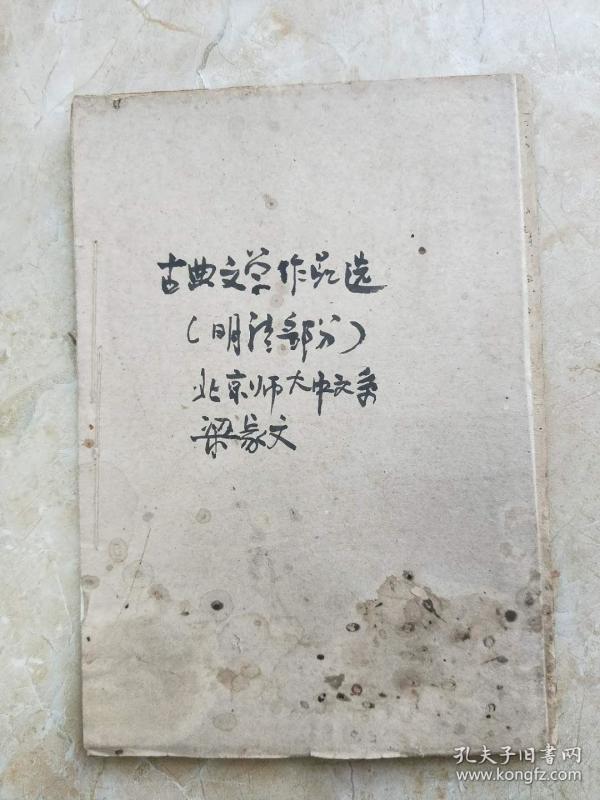 古典文学作品选
(明清部分)
北京师大中文系
梁家文
孔夫子旧书网
www.kongfz.com